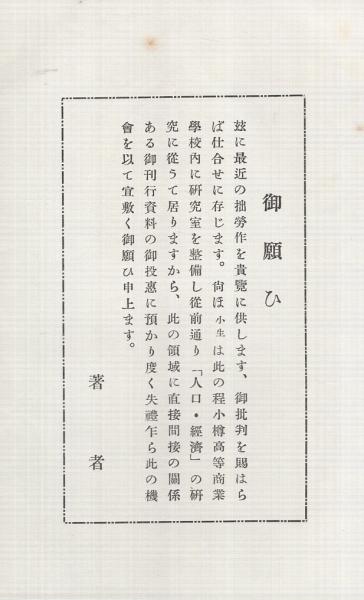 御願ひ
玆に最近の拙勞作を貴覽に供します、御批判を賜はら
ば仕合せに存じます。尙ほ小生は此の程小樽高等商業
學校內に硏究室を整備し從前通り「人口・經濟」の硏
究に從うて居りますから、此の領域に直接間接の關係
ある御刊行資料の御投惠に預かり度く失禮乍ら此の機
會を以て宜敷く御願ひ申上ます。
著者